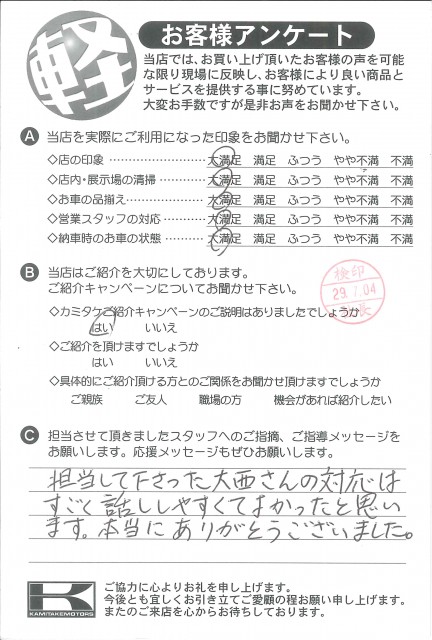 軽
お客様アンケート
当店では、お買い上げ頂いたお客様の声を可能
な限り現場に反映し、お客様により良い商品と
サービスを提供する事に努めています。
大変お手数ですが是非お声をお聞かせ下さい。
A 当店を実際にご利用になった印象をお聞かせ下さい。
◇店の印象 ………………… 大満足 満足 ふつう やや不満 不満
◇店内・展示場の清掃………… 大満足 満足 ふつう やや不満 不満
◇お車の品揃え……………… 大満足 満足 ふつう やや不満 不満
◇営業スタッフの対応………… 大満足 満足 ふつう やや不満 不満
◇納車時のお車の状態………… 大満足 満足 ふつう やや不満 不満
B 当店はご紹介を大切にしております。
ご紹介キャンペーンについてお聞かせ下さい。
検印
29.7.04
長
◇カミタケご紹介キャンペーンのご説明はありましたでしょうか
はい いいえ
◇ご紹介を頂けますでしょうか
はい いいえ
◇具体的にご紹介頂ける方とのご関係をお聞かせ頂けますでしょうか
ご親族 ご友人 職場の方 機会があれば紹介したい
C 担当させて頂きましたスタッフへのご指摘、ご指導メッセージを
お願いします。応援メッセージもぜひお願いします。
担当して下さった大西さんの対応は
すごく話ししやすくてよかったと思い
ます。本当にありがとうございました。
K
KAMITAKEMOTORS
ご協力に心よりお礼を申し上げます。
今後とも宜しくお引き立てご愛顧の程お願い申し上げます。
またのご来店を心からお待ちしております。